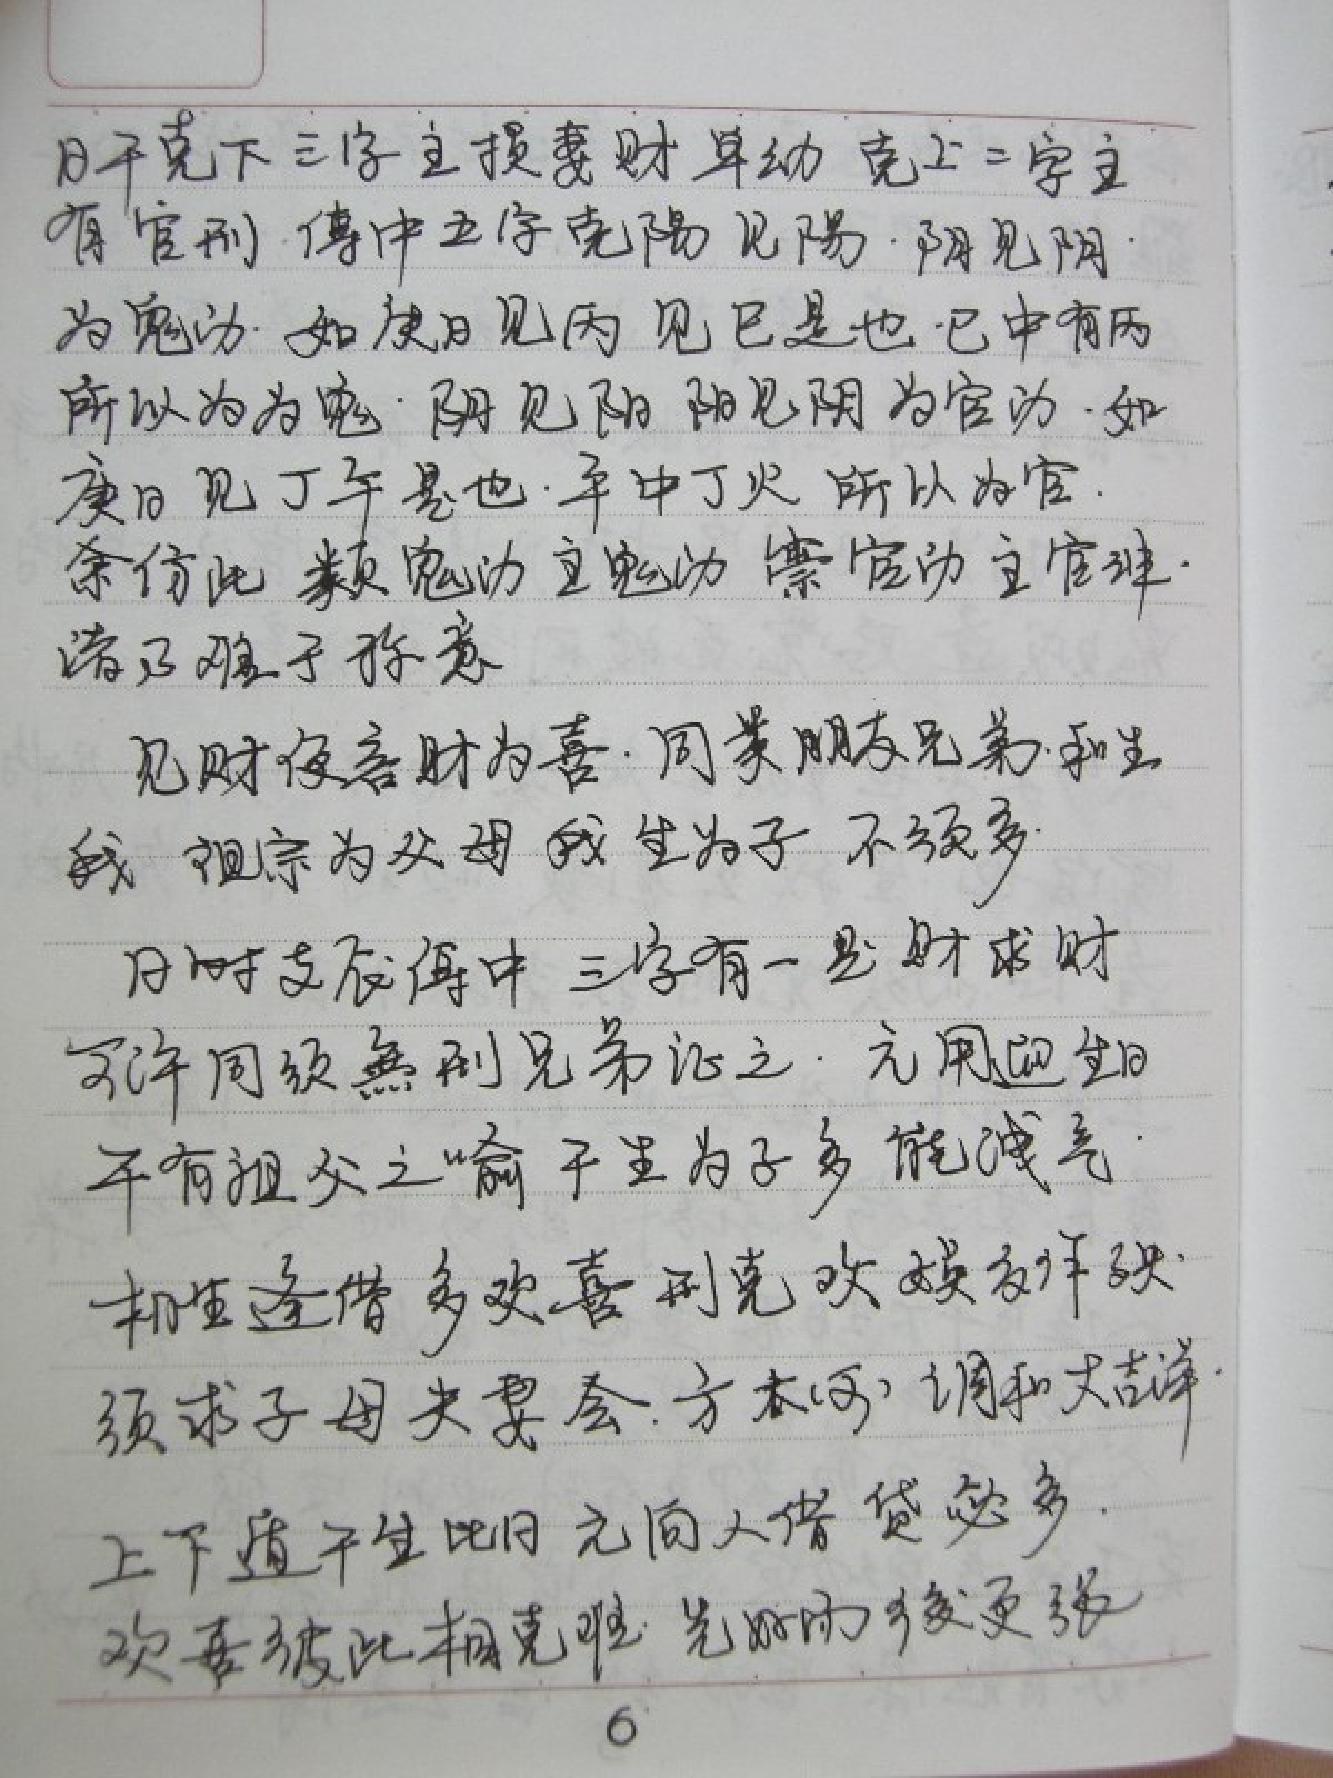 日干克下三字主损妻财卑幼 克上二字主
有官刑 傳中五字克陽见陽·阴见阴·
为鬼动·如庚日见丙见巳是也·巳中有丙
所以为为鬼·阴见阳阳见阴为官动·如
庚日见丁午是也·午中丁火所以为官·
余仿此 类鬼动主鬼动祟官动主官非·
请乃难于称意
见财便言财为喜·同类朋友兄弟·和生
我 祖宗为父母我生为子不须多·
日时支辰傳中三字有一是财求财
可许同须無刑兄弟论之·元用迴生日
干有祖父之喻干生为子多能减气·
相生逢借多欢喜刑克欢娱友作殃·
须求子母夫妻会·方本(可)调和大吉祥·
上下遁干生比日元向人借贷必多·
欢喜彼此相克难·先好而後更张
6